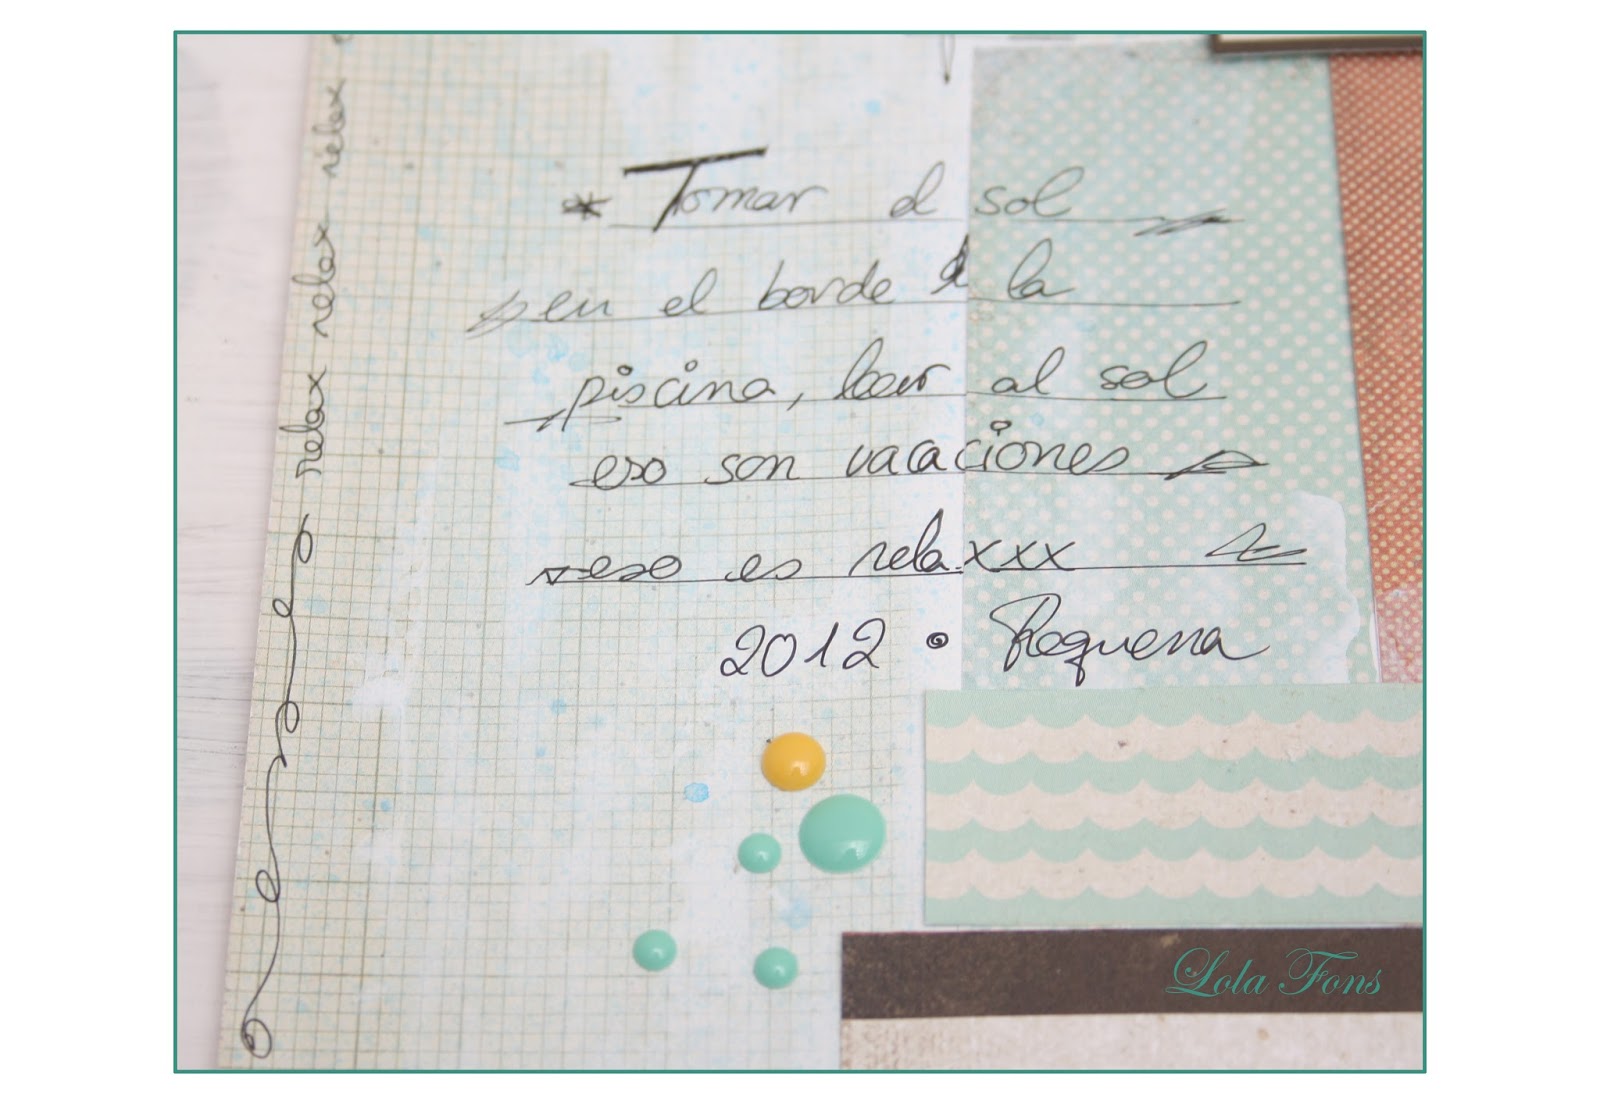 * Tomar el sol
en el borde d la
piscina, leer al sol
eso son vacaciones
eso es relaxxx
2012 • Requena
relax relax relax relax
Lola Fons